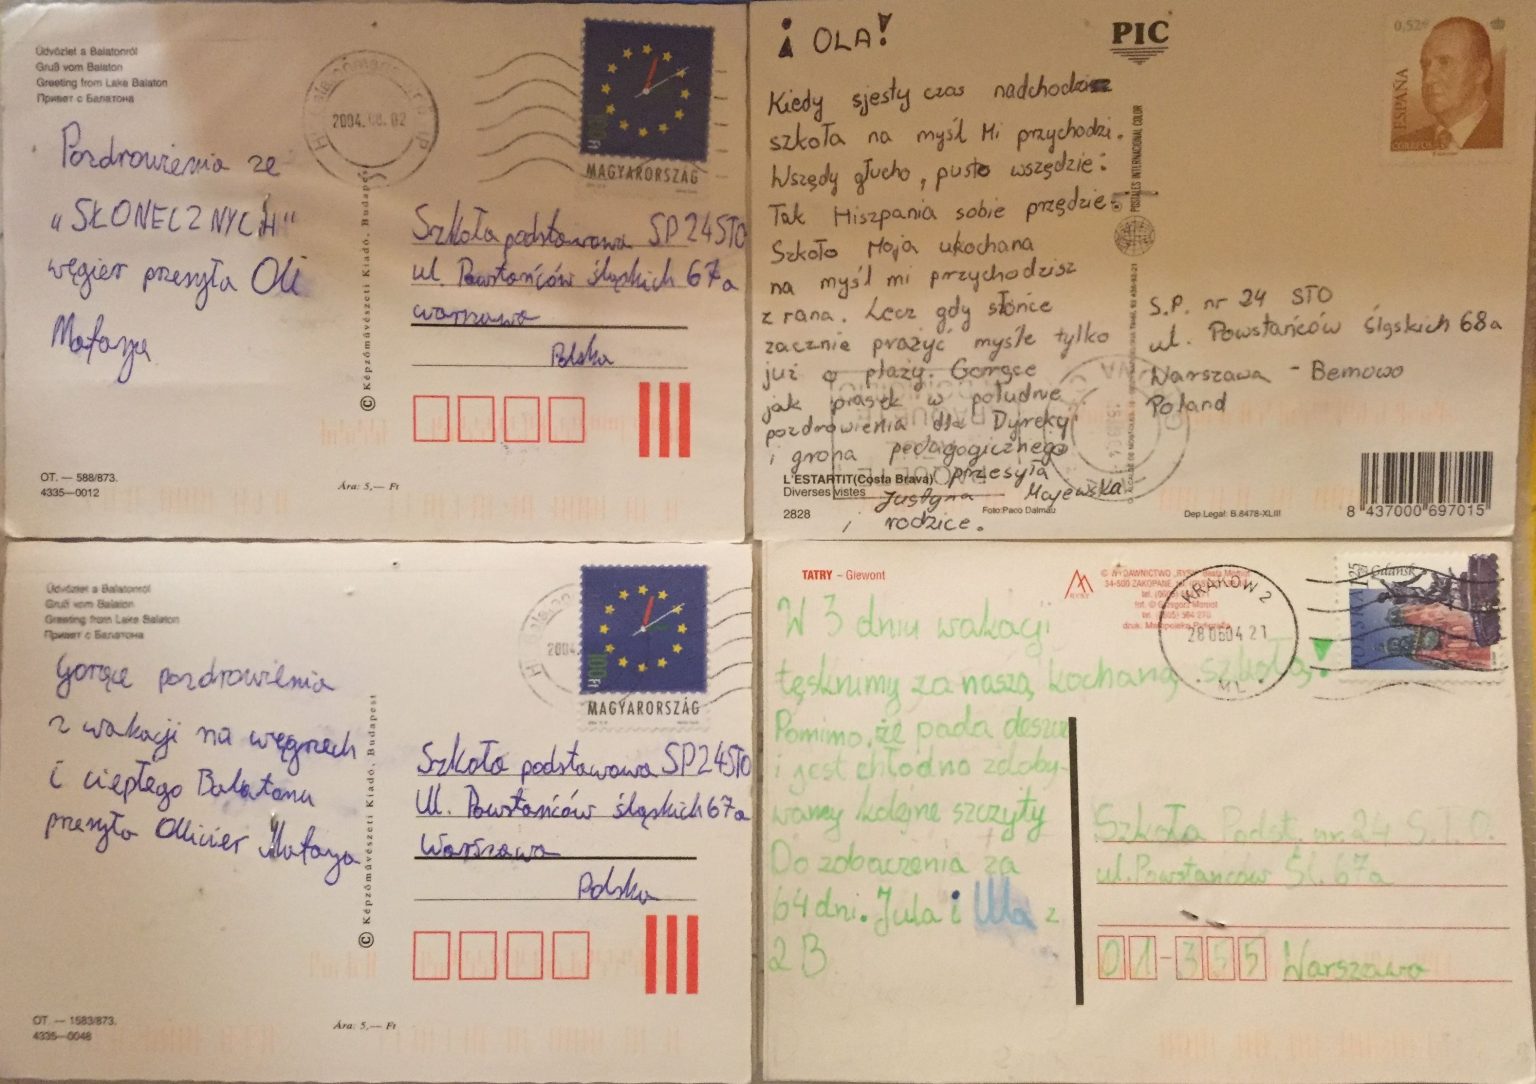 Üdvözlet a Balatonról
Gruß vom Balaton
Greeting from Lake Balaton
Привет с Балатона
Pozdrowienia ze
„SŁONECZNYCH"
węgier przesyła Oli
Mataya
2004.08.02
100Ft
MAGYARORSZÁG
Szkoła podstawowa SP 24STO
ul. Powstańców śląskich 67a
warszawa
Polska
© Képzőművészeti Kiadó, Budapest
OT. — 588/873.
4335—0012
Ára: 5,— Ft
¡ OLA!
PIC
0,52€
ESPAÑA
CORREOS
Kiedy sjesty czas nadchodzi
szkoła na myśl Mi przychodzi.
Wszędy głucho, pusto wszędzie:
Tak Hiszpania sobie przędzie.
Szkoło Moja ukochana
na myśl mi przychodzisz
z rana. Lecz gdy słońce
zacznie prażyć myśle tylko
już o plaży. Gorące
jak piasek w południe
pozdrowienia dla Dyrekcji
i grona pedagogicznego
przesyła
Justyna Majewska
i rodzice.
POSTALES INTERNACIONAL COLOR
S.P. nr 24 STO
ul. Powstańców śląskich 68a
Warszawa - Bemowo
Poland
L'ESTARTIT(Costa Brava)
Diverses vistes
2828
Foto:Paco Dalmau
Dep.Legal: B.8478-XLIII
8 437000 697015
Üdvözlet a Balatonról
Gruß vom Balaton
Greeting from Lake Balaton
Привет с Балатона
Gorące pozdrowienia
z wakacji na węgrzech
i ciepłego Balatonu
przesyła Ollivier Mataya
2004.
100Ft
MAGYARORSZÁG
Szkoła podstawowa SP24STO
Ul. Powstańców śląskich 67a
Warszawa
Polska
© Képzőművészeti Kiadó, Budapest
OT. — 1583/873.
4335—0048
Ára: 5,— Ft
TATRY – Giewont
34-500 ZAKOPANE
KRAKÓW 2
280604 21
ML
Gdańsk
W 3 dniu wakacji
tęsknimy za naszą kochaną szkołą.
Pomimo, że pada deszcz
i jest chłodno zdoby-
wamy kolejne szczyty
Do zobaczenia za
64 dni. Jula i Ula z
2 B
Szkoła Podst. nr. 24 S.T.O.
ul. Powstańców Śl. 67a
01-355 Warszawa